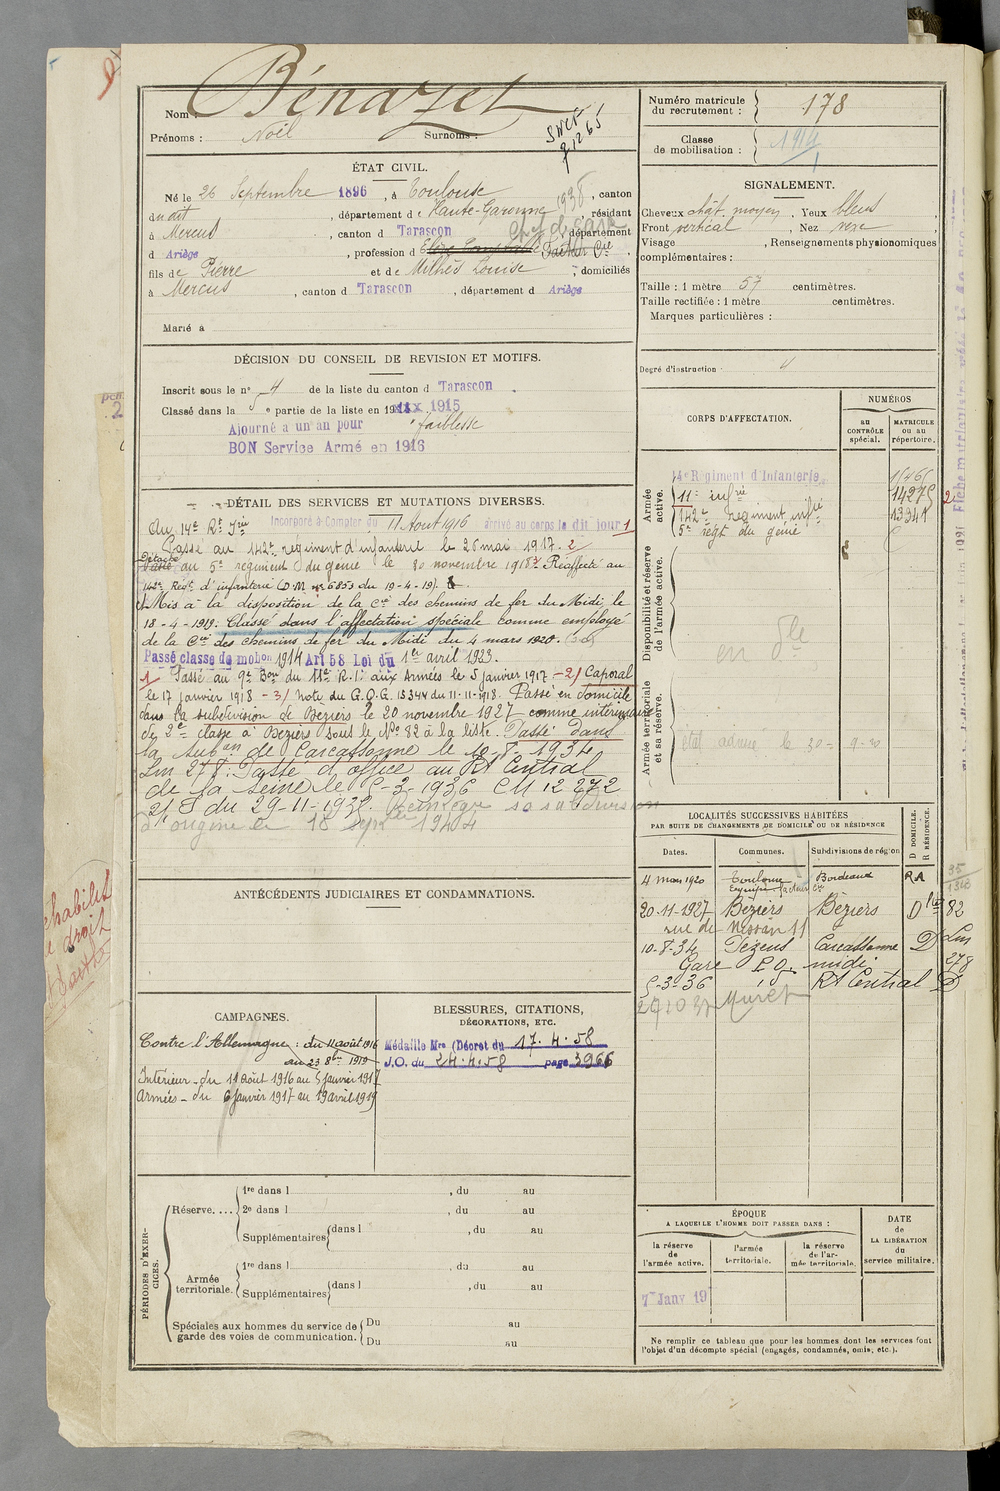 Nom : Bénazet
Prénoms : Noël Surnoms :
ÉTAT CIVIL.
Né le 26 Septembre 1896, à Toulouse, canton
du dit, département de Haute-Garonne, résidant
à Mercus, canton d Tarascon, département
d Ariège, profession d Facteur Cie
fils de Pierre et de Milhès Louise, domiciliés
à Mercus, canton d Tarascon, département d Ariège
Marié à
DÉCISION DU CONSEIL DE REVISION ET MOTIFS.
Inscrit sous le n° 4 de la liste du canton d Tarascon.
Classé dans la 5e partie de la liste en 1915
Ajourné a un an pour faiblesse
BON Service Armé en 1916
DÉTAIL DES SERVICES ET MUTATIONS DIVERSES.
Au 14e Rt Irie Incorporé à Compter du 11 Aout 1916 arrivé au corps le dit jour 1
Passé au 142e régiment d'infanterie le 26 mai 1917. 2
Détaché au 5e régiment du génie le 20 novembre 1918 3 Réaffecté au
142e Régt d'infanterie (D.M. n° 6853 du 19-4-19).
Mis à la disposition de la Cie des chemins de fer du Midi le
18-4-1919. Classé dans l'affectation spéciale comme employé
de la Cie des chemins de fer du Midi du 4 mars 1920.
Passé classe de mobon 1914 Art 58 Loi du 1er avril 1923.
1 Passé au 9e Bon du 11e R.I. aux Armées le 5 janvier 1917 - 2/ Caporal
le 17 janvier 1918 - 3/ note du G.Q.G. 15344 du 11-11-1918. Passé en domicile
dans la subdivision de Béziers le 20 novembre 1927 comme intérimaire
de 2e classe à Béziers sous le N° 82 à la liste. Passé dans
la Subon de Carcassonne le 10-8-1934
Lm 278. Passé d'office au RA Central
de la Seine le 5-3-1936 CM 12272
2/8 du 29-11-1935. Réintégré sa subdivision
d'origine le 18 1944
ANTÉCÉDENTS JUDICIAIRES ET CONDAMNATIONS.
CAMPAGNES.
Contre l'Allemagne : du 11 août 1916
au 23 8bre 1919
Intérieur - du 11 Août 1916 au 5 janvier 1917
Armées - du 6 janvier 1917 au 19 avril 1919
BLESSURES, CITATIONS,
DÉCORATIONS, ETC.
Médaille Mre (Décret du 17.4.58
J.O. du 24.4.58 page 3966
PÉRIODES D'EXERCICES.
Réserve.... 1re dans l , du au
2e dans l , du au
Supplémentaires dans l , du au
Armée territoriale. 1re dans l , du au
Supplémentaires dans l , du au
Spéciales aux hommes du service de Du au
garde des voies de communication. Du au
Numéro matricule
du recrutement : 178
Classe
de mobilisation : 1914
SIGNALEMENT.
Cheveux chât. moyen, Yeux bleus,
Front vertical, Nez vexe,
Visage , Renseignements physionomiques
complémentaires :
Taille : 1 mètre 57 centimètres.
Taille rectifiée : 1 mètre centimètres.
Marques particulières :
Degré d'instruction : 4
CORPS D'AFFECTATION.
NUMÉROS
au CONTRÔLE spécial.
MATRICULE ou au répertoire.
Armée active.
14e Régiment d'Infanterie
11e infrie
142e régiment infrie 13341
5e régt du génie
Disponibilité et réserve de l'armée active.
Armée territoriale et sa réserve.
LOCALITÉS SUCCESSIVES HABITÉES
PAR SUITE DE CHANGEMENTS DE DOMICILE OU DE RÉSIDENCE
Dates. Communes. Subdivisions de région D DOMICILE. R RÉSIDENCE.
4 mars 1920 Toulouse Bordeaux RA
20-11-1927 Béziers Béziers D 82
rue de Nissan 11
10-8-34 Pézens Carcassonne D Lm 278
Gare midi
5-3-36 RA Central D
Muret
ÉPOQUE
A LAQUELLE L'HOMME DOIT PASSER DANS :
la réserve de l'armée active.
l'armée territoriale.
la réserve de l'armée territoriale.
DATE de LA LIBÉRATION du service militaire.
7 Janv 19
Ne remplir ce tableau que pour les hommes dont les services font
l'objet d'un décompte spécial (engagés, condamnés, omis, etc.).